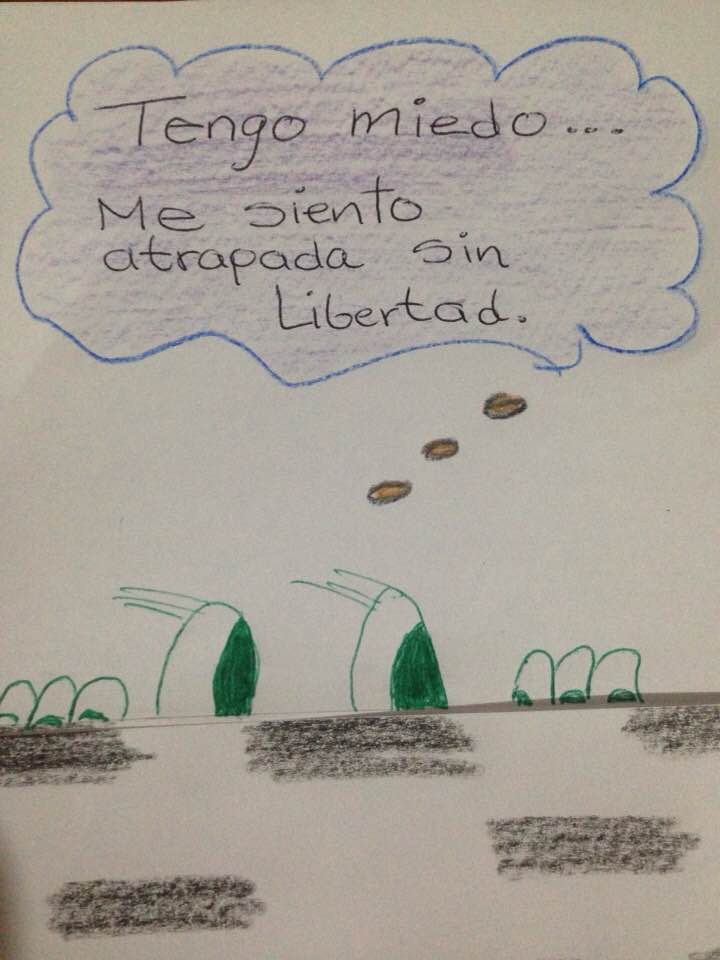 Tengo miedo...
Me siento
atrapada sin
Libertad.